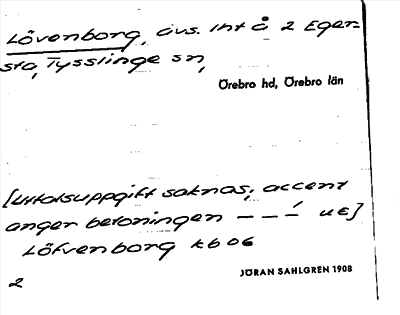 Lövenborg, avs. lht å 2 Eger-
sta, Tysslinge sn,
Örebro hd, Örebro län
[Uttalsuppgift saknas; accent
anger betoningen – – –́ uE]
Löfvenborg kb 06
2
JÖRAN SAHLGREN 1908